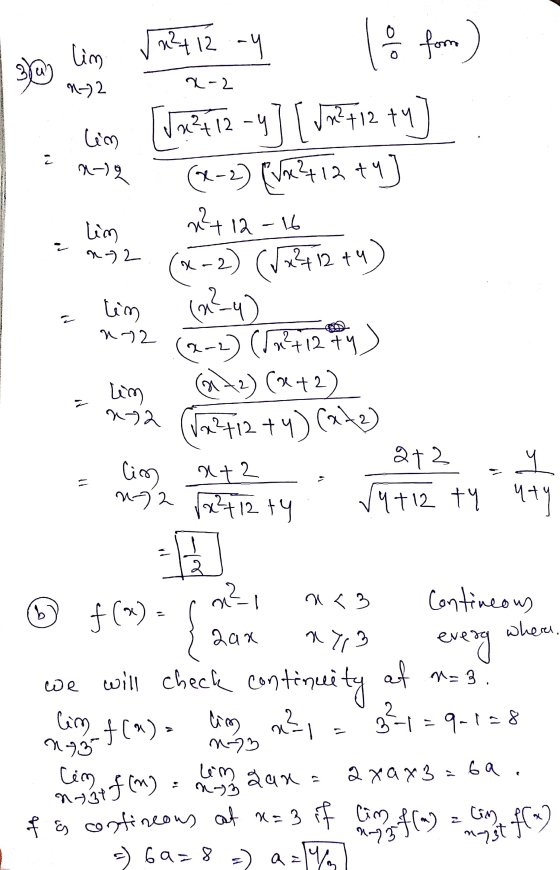 3) (a) lim x→2 (√(x²+12) - 4)/(x-2) (0/0 form)
= lim x→2 [√(x²+12) - 4] [√(x²+12) + 4] / (x-2) [√(x²+12) + 4]
= lim x→2 (x²+12-16) / (x-2) (√(x²+12) + 4)
= lim x→2 (x²-4) / (x-2) (√(x²+12) + 4)
= lim x→2 (x-2) (x+2) / (√(x²+12) + 4) (x-2)
= lim x→2 (x+2) / (√(x²+12) + 4) = (2+2) / (√(4+12) + 4) = 4/(4+4)
= 1/2
(b) f(x) = { x²-1 x < 3 Continuous
2ax x ≥ 3 every where.
we will check continuity at x=3.
lim x→3⁻ f(x) = lim x→3 x²-1 = 3²-1 = 9-1 = 8
lim x→3+ f(x) = lim x→3 2ax = 2×a×3 = 6a.
f is continuous at x=3 if lim x→3⁻ f(x) = lim x→3+ f(x)
⇒ 6a=8 ⇒ a = 4/3